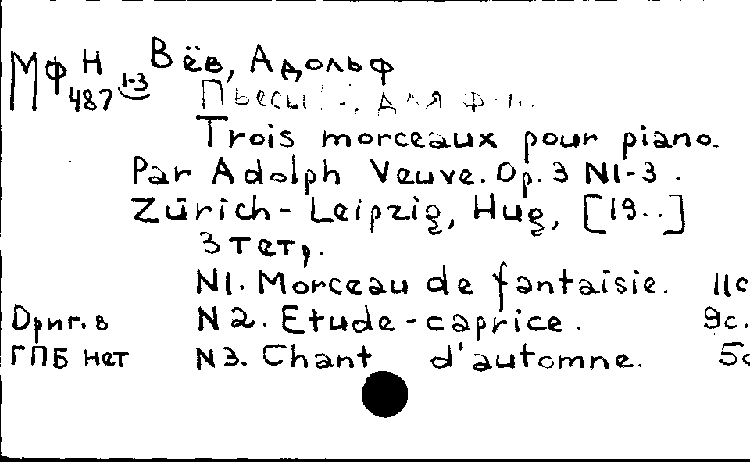 МФ Н Вёв, Адольф
487 1-3 Пьесы, для ф-п.
Trois morceaux pour piano.
Par Adolph Veuve. Op. 3 N1-3.
Zürich-Leipzig, Hug, [19..]
3 тетр.
N1. Morceau de fantaisie. 11с
Ориг. в N2. Etude-caprice. 9с.
ГПБ нет N3. Chant d'automne. 5с